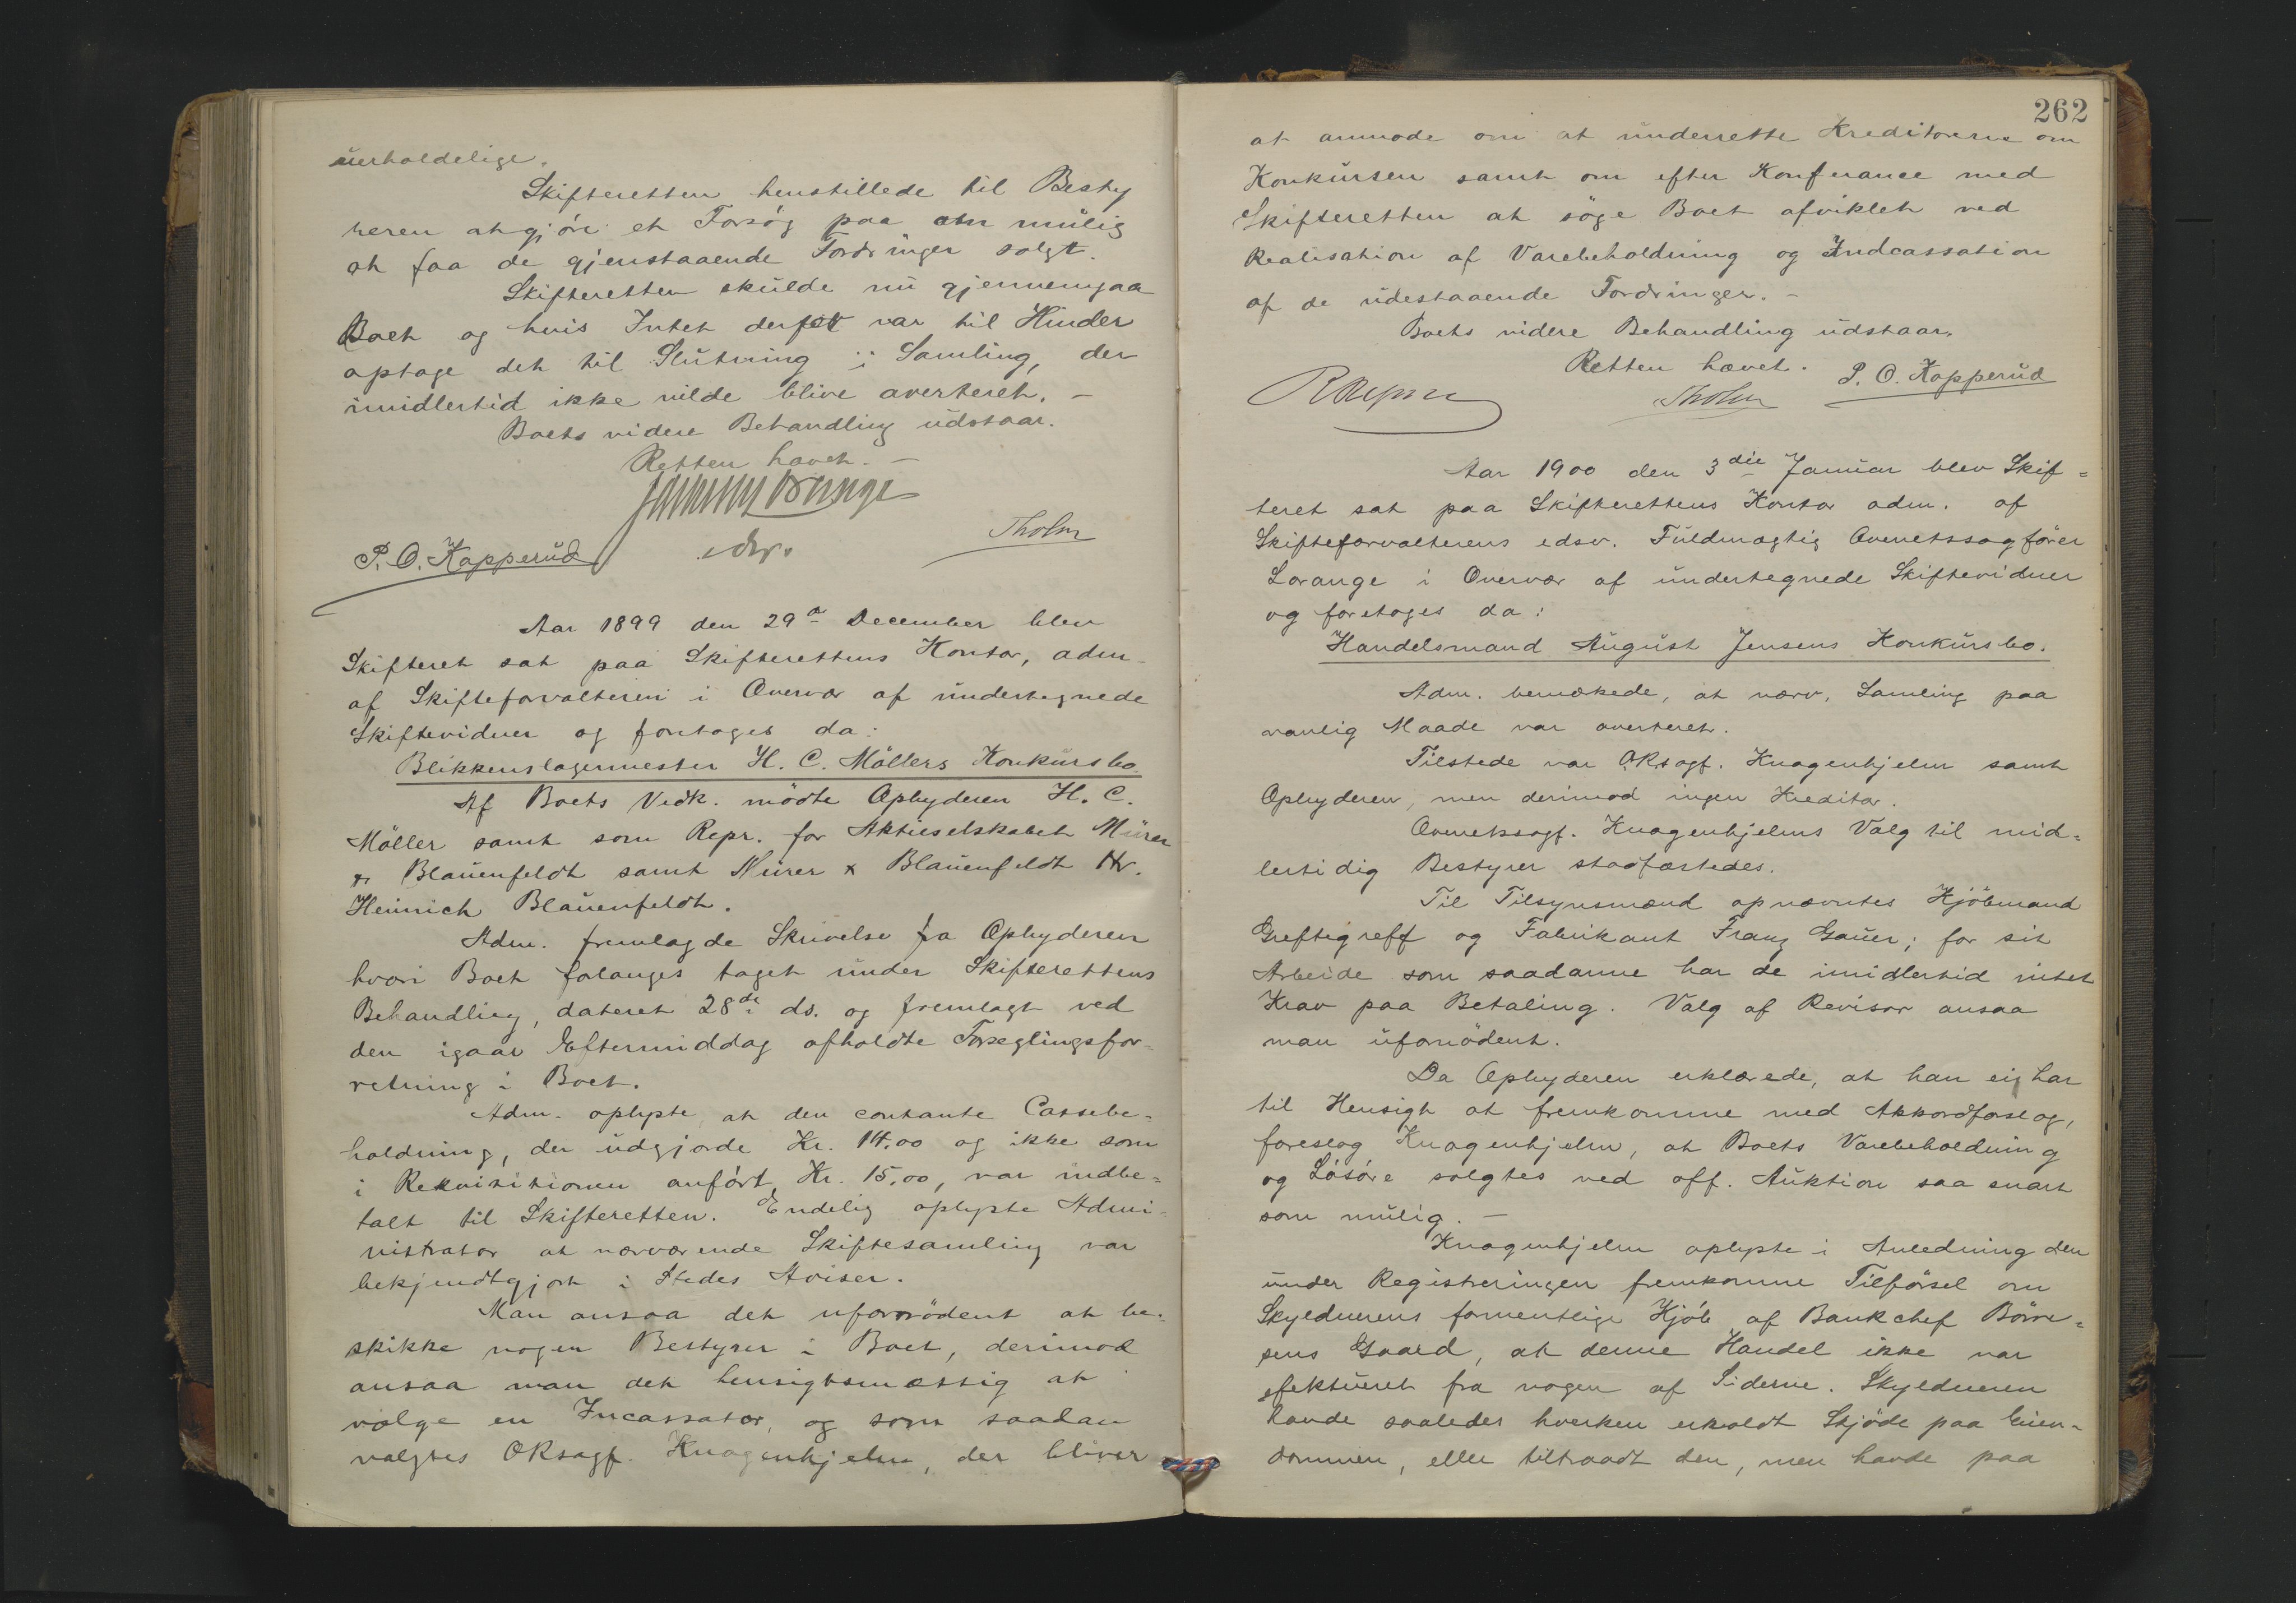 uerholdelige.
Skifteretten henstillede til Besty
reren at gjöre et Forsög paa om mulig
at faa de gjenstaaende Fordringer solgt.
Skifteretten skulde nu gjennemgaa
Boet og hvis Intet derfor var til Hinder
optage det til Slutning i Samling, der
imidlertid ikke vilde blive averteret. –
Boets videre Behandling udstaar.
Retten hævet. –
P. O. Kopperud
edsv.
Tholm
Aar 1899 den 29de December blev
Skifteret sat paa Skifterettens Kontor, adm.
af Skifteforvalteren i Overvær af undertegnede
Skiftevidner og foretoges da:
Blikkenslagermester H. C. Möllers Konkursbo.
Af Boets Vedk. mödte Opbyderen H. C.
Möller samt som Repr. for Aktieselskabet Mürer
& Blauenfeldt samt Mürer & Blauenfeldt Hr.
Heinrich Blauenfeldt.
Adm. fremlagde Skrivelse fra Opbyderen
hvori Boet forlanges taget under Skifterettens
Behandling, dateret 28de ds. og fremlagt ved
den igaar Eftermiddag afholdte Forseglingsfor-
retning i Boet.
Adm. oplyste, at den contante Cassebe=
holdning, der udgjorde Kr. 14.00 og ikke som
i Rekvisitionen anfört, Kr. 15,00, var indbe=
talt til Skifteretten. Endelig oplyste Admi-
nistrator at nærværende Skiftesamling var
bekjendtgjort i Stedes Aviser.
Man ansaa det ufornödent at be-
skikke nogen Bestyrer i Boet, derimod
ansaa man det hensigtsmæssig at
vælge en Incassator, og som saadan
valgtes ORsagf. Knagenhjelm, der bliver
262
at anmode om at underrette Kreditorerne om
Konkursen samt om efter Konferance med
Skifteretten at söge Boet afviklet ved
Realisation af Varebeholdning og Indcassation
af de udestaaende Fordringer. –
Boets videre Behandling udstaar.
Retten hævet.
P. O. Kopperud
Tholm
Aar 1900 den 3die Januar blev Skif=
teret sat paa Skifterettens Kontor adm. af
Skifteforvalterens edsv. Fuldmægtig Overretssagförer
Lorange i Overvær af undertegnede Skiftevidner
og foretoges da:
Handelsmand August Jensens Konkursbo.
Adm. bemærkede, at nærv. Samling paa
vanlig Maade var averteret.
Tilstede var ORsagf. Knagenhjelm samt
Opbyderen, men derimod ingen Kreditor.
Overretssagf. Knagenhjelms Valg til mid=
lertidig Bestyrer stadfæstedes.
Til Tilsynsmænd opnævntes Kjöbmand
Greftegreff og Fabrikant Franz Gauer; for sit
Arbeide som saadanne har de imidlertid intet
Krav paa Betaling. Valg af Revisor ansaa
man ufornödent.
Da Opbyderen erklærede, at han ei har
til Hensigt at fremkomme med Akkordforslag,
foreslog Knagenhjelm, at Boets Varebeholdning
og Lösöre solgtes ved off. Auktion saa snart
som mulig. –
Knagenhjelm oplyste i Anledning den
under Registreringen fremkomne Tilförsel om
Skyldnerens formentlige Kjöb af Bankchef Börre=
sens Gaard, at denne Handel ikke var
efektueret fra nogen af Siderne. Skyldneren
havde saaledes hverken erholdt Skjöde paa Eien=
dommen, eller tiltraadt den, men havde paa